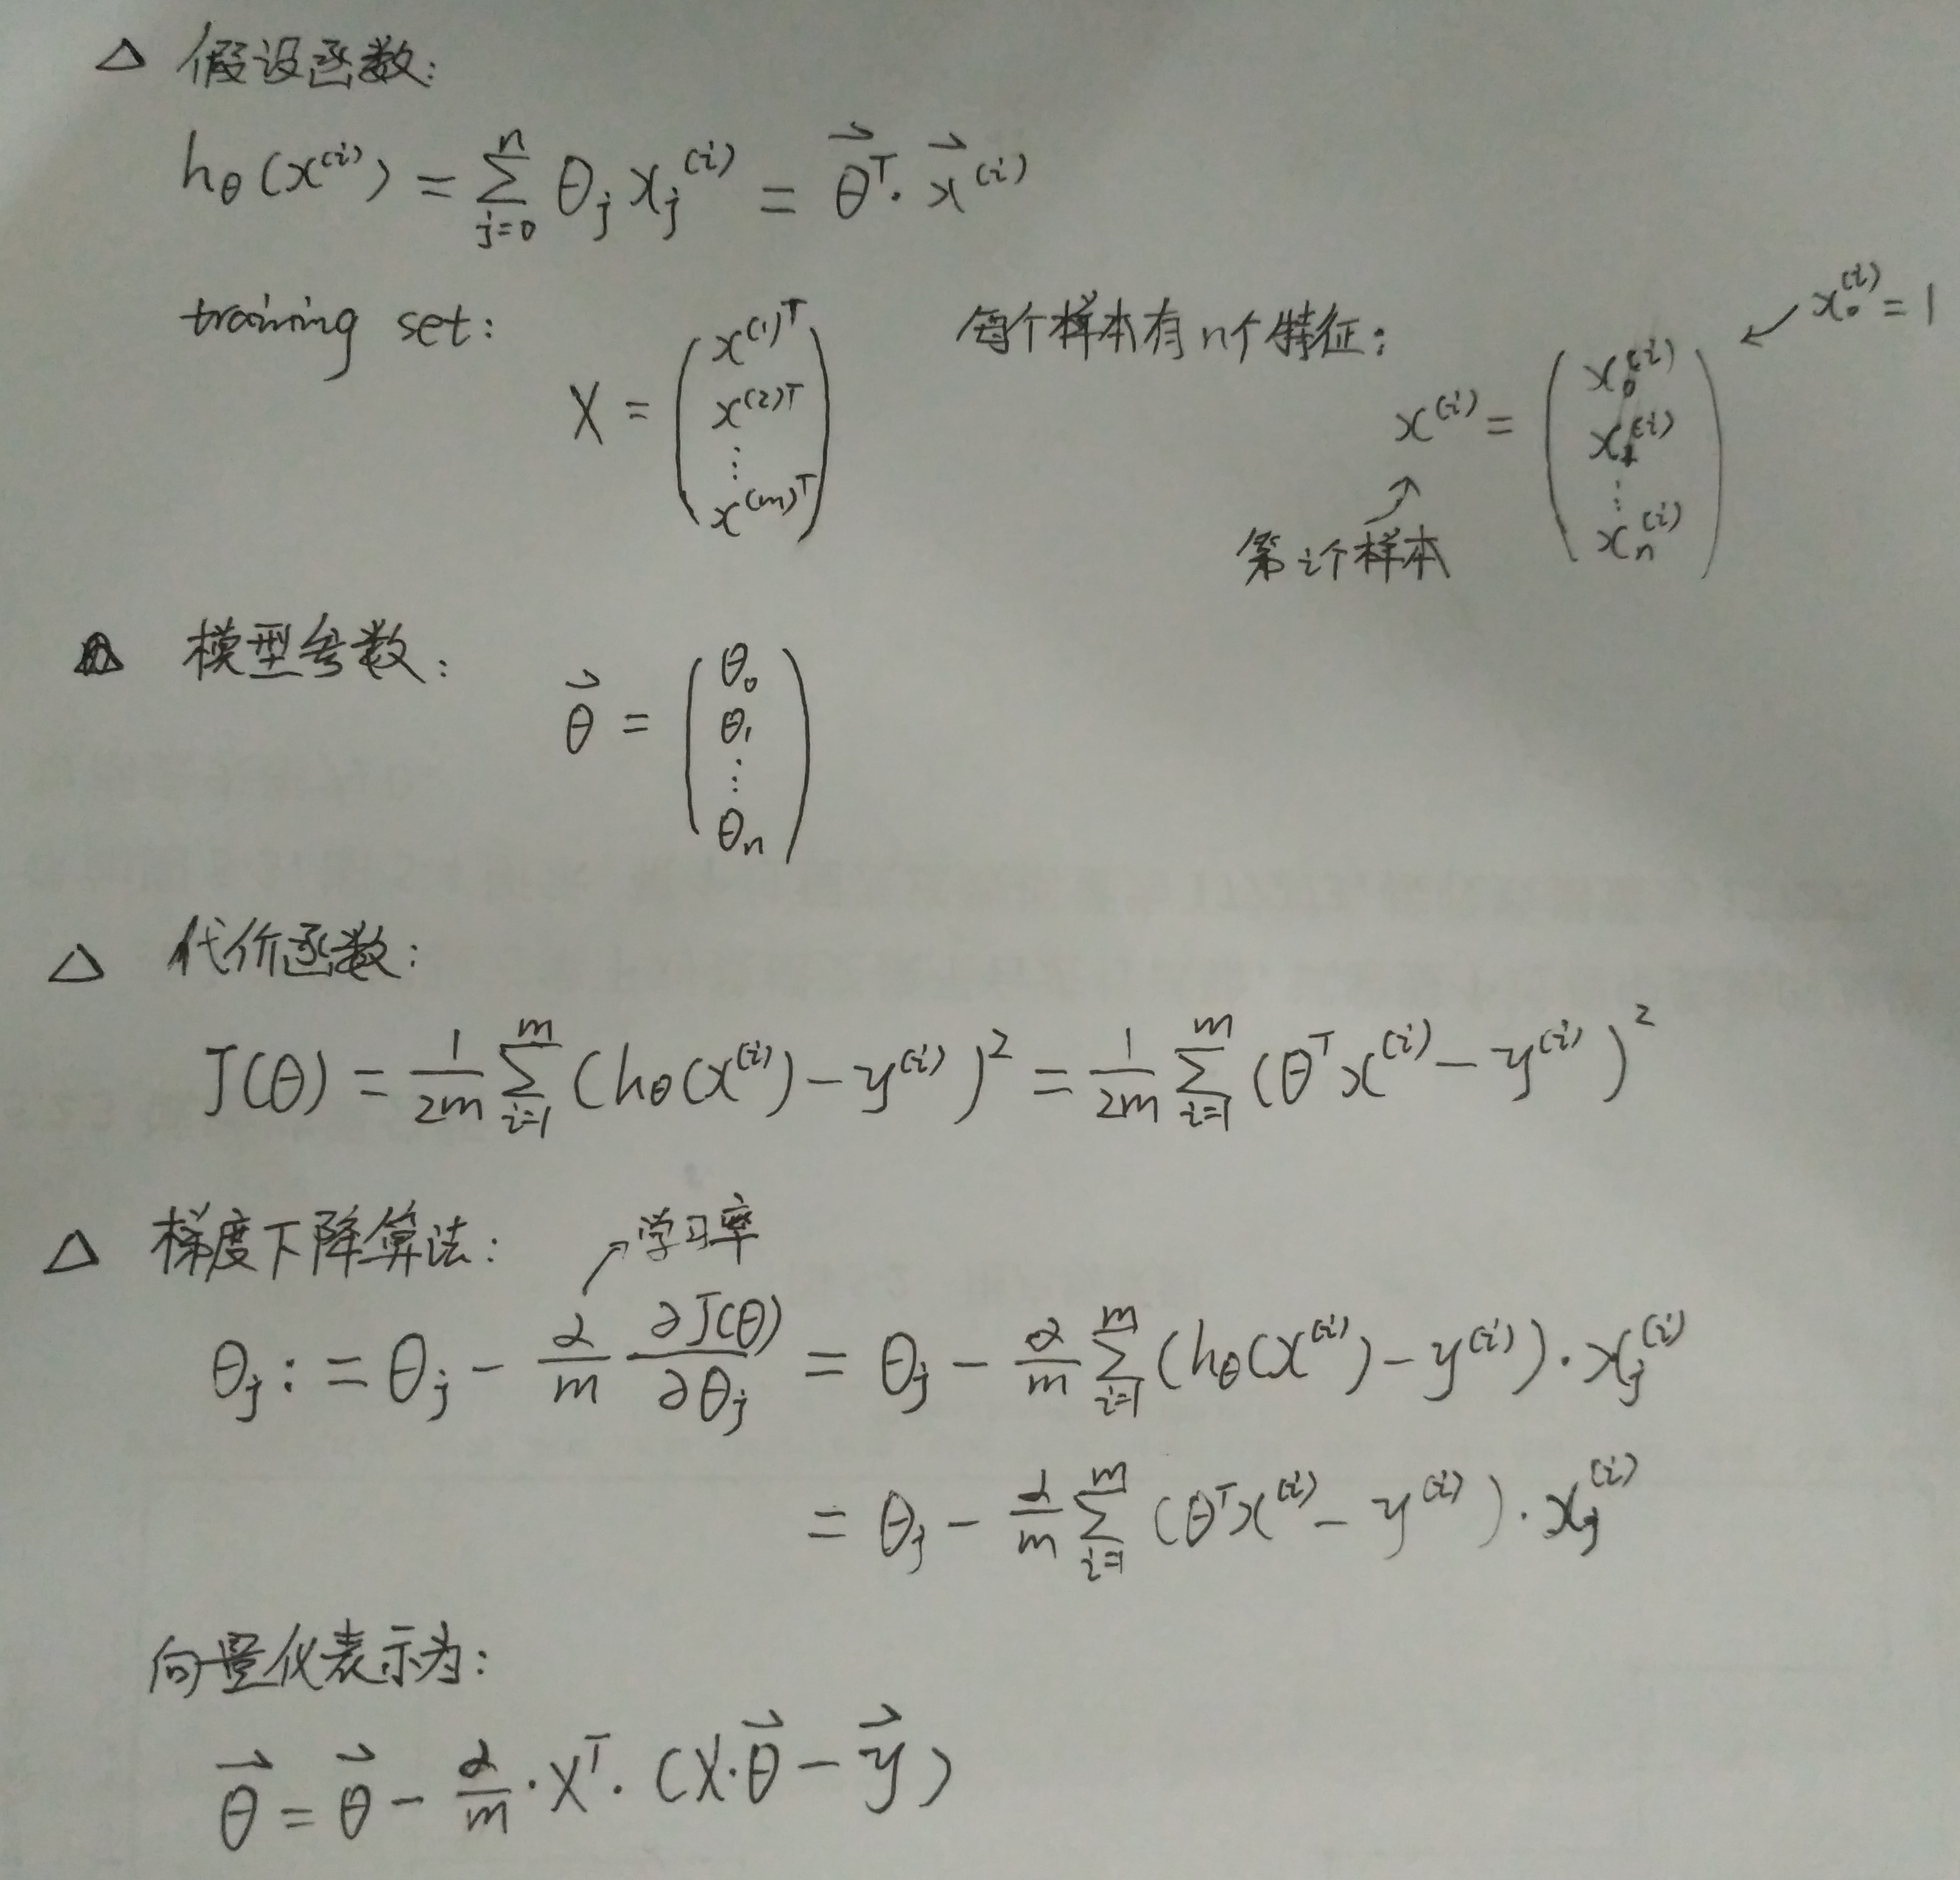 △ 假设函数:
hθ(x⁽ⁱ⁾) = ∑_{j=0}^{n} θ_j x_j⁽ⁱ⁾ = θ⃗ᵀ · x⃗⁽ⁱ⁾
training set:
X = ( x⁽¹⁾ᵀ
x⁽²⁾ᵀ
⋮
x⁽ᵐ⁾ᵀ )
每个样本有n个特征:
x⁽ⁱ⁾ = ( x₀⁽ⁱ⁾
x₁⁽ⁱ⁾
⋮
xₙ⁽ⁱ⁾ )
↙ x₀⁽ⁱ⁾ = 1
第i个样本 ↗
△ 模型参数:
θ⃗ = ( θ₀
θ₁
⋮
θₙ )
△ 代价函数:
J(θ) = 1/2m ∑_{i=1}^{m} (hθ(x⁽ⁱ⁾) − y⁽ⁱ⁾)² = 1/2m ∑_{i=1}^{m} (θᵀx⁽ⁱ⁾ − y⁽ⁱ⁾)²
△ 梯度下降算法:
↗ 学习率
θ_j := θ_j − α/m ∂J(θ)/∂θ_j = θ_j − α/m ∑_{i=1}^{m} (hθ(x⁽ⁱ⁾) − y⁽ⁱ⁾) · x_j⁽ⁱ⁾
= θ_j − α/m ∑_{i=1}^{m} (θᵀx⁽ⁱ⁾ − y⁽ⁱ⁾) · x_j⁽ⁱ⁾
向量化表示为:
θ⃗ = θ⃗ − α/m · Xᵀ · (X · θ⃗ − y⃗)